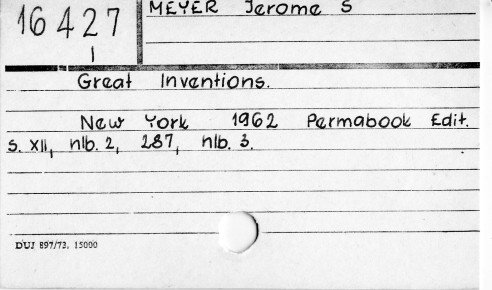 16427
I
MEYER Jerome S
Great Inventions.
New York 1962 Permabook Edit.
S. XII, nlb. 2, 287, nlb. 3.
DUJ 897/73. 15000